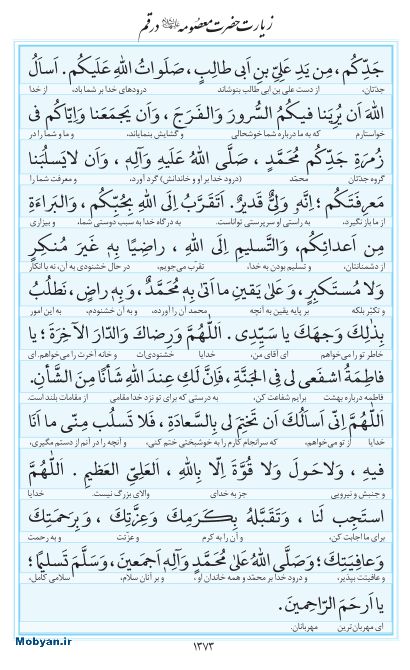 زیارت حضرت معصومه علیهاالسلام در قم
جَدِّكُم، مِن یَدِ عَلِیِّ بنِ اَبی طالِبٍ، صَلَواتُ اللهِ عَلَیكُم. اَسأَلُ
جدّتان، از دست علی بن ابی طالب بنوشاند درودهای خدا بر شما باد، از خدا
اللهَ اَن یُرِیَنا فیكُمُ السُّرورَ وَالفَرَجَ، وَاَن یَجمَعَنا وَاِیّاكُم فی
خواستارم که به ما درباره شما خوشحالی و گشایش بنمایاند، و ما و شما را در
زُمرَةِ جَدِّكُم مُحَمَّدٍ، صَلَّی اللهُ عَلَیهِ وَآلِهِ، وَاَن لایَسلُبَنا
گروه جدّتان محمّد (درود خدا بر او و خاندانش) گرد آورد، و معرفت شما را
مَعرِفَتَكُم؛ اِنَّهُ وَلِیٌّ قَدیرٌ. اَتَقَرَّبُ اِلَی اللهِ بِحُبِّكُم، وَالبَراءَةِ
از ما باز نگیرد، به راستی او سرپرستی تواناست. به درگاه خدا به سبب دوستی شما، و بیزاری
مِن اَعدائِكُم، وَالتَّسلیمِ اِلَی اللهِ ، راضِیًا بِهِ غَیرَ مُنكِرٍ
از دشمنانتان، و تسلیم بودن به خدا، تقرب می‌جویم، در حال خشنودی به آن، نه با انکار
وَلا مُستَكبِرٍ، وَعَلیٰ یَقینِ ما اَتیٰ بِهِ مُحَمَّدٌ، وَبِهِ راضٍ، نَطلُبُ
و تکبّر بلکه بر پایه یقین به آنچه محمد آن را آورده، و به آن خشنودم، به این امور
بِذٰلِكَ وَجهَكَ یا سَیِّدی. اَللّٰهُمَّ وَرِضاكَ وَالدّارَ الآخِرَةَ؛ یا
خاطر تو را می‌خواهم ای آقای من، خدایا خشنودی‌ات و خانه آخرت را می‌خواهم. ای
فاطِمَةُ اشفَعی لی فِی الجَنَّةِ، فَاِنَّ لَكِ عِندَ اللهِ شَأنًا مِنَ الشَّأنِ.
فاطمه درباره بهشت برایم شفاعت کن، به درستی که برای تو نزد خدا مقامی از مقامات بلند است.
اَللّٰهُمَّ اِنّی اَسأَلُكَ اَن تَختِمَ لی بِالسَّعادَةِ، فَلا تَسلُب مِنّی ما اَنَا
خدایا از تو می‌خواهم، که سرانجام کارم را به خوشبختی ختم کنی، و آنچه را در آنم از دستم مگیری،
فیهِ ، وَلاحَولَ وَلا قُوَّةَ اِلّا بِاللهِ ، العَلِیِّ العَظیمِ . اَللّٰهُمَّ
و جنبش و نیرویی جز به خدای والای بزرگ نیست. خدایا
استَجِب لَنا ، وَتَقَبَّلهُ بِكَرَمِكَ وَعِزَّتِكَ ، وَبِرَحمَتِكَ
برای ما اجابت کن، و آن را به کرم و عزّتت و به رحمت
وَعافِیَتِكَ؛ وَصَلَّی اللهُ عَلیٰ مُحَمَّدٍ وَآلِهِ اَجمَعینَ، وَسَلَّمَ تَسلیمًا؛
و عافیتت بپذیر، و درود خدا بر محمّد و همه خاندان او، و بر آنان سلام، سلامی کامل،
یا اَرحَمَ الرّاحِمینَ.
ای مهربان‌ترین مهربانان.
Mobyan.ir
۱۳۷۳